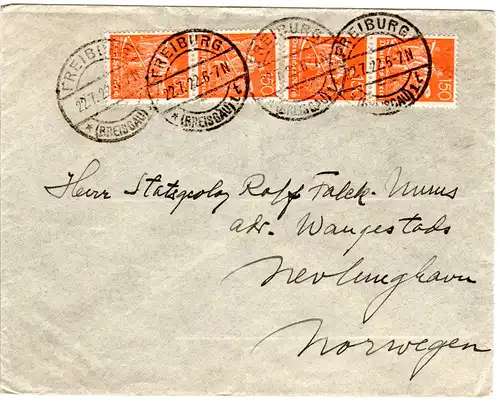 FREIBURG
22.7.22.6-7N
* (BREISGAU) 1.f.
FREIBURG
22.7.22.6-7N
* (BREISGAU) 1.f.
FREIBURG
(BREISGAU)
FREIBURG
22.7.22.6-7N
(BREISGAU) 1.f.
150
150
Herr Statsgeolog Rolf Falck-Muus
adr. Wangestads
Nevlunghavn
Norwegen